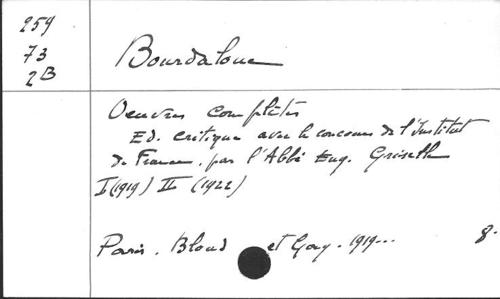 259
73
2B
Bourdaloue
Oeuvres complètes
Ed. critique avec le concours de l'Institut
de France, par l'Abbé Eug. Griselle
I (1919) II (1922)
Paris. Bloud et Gay. 1919...
8.